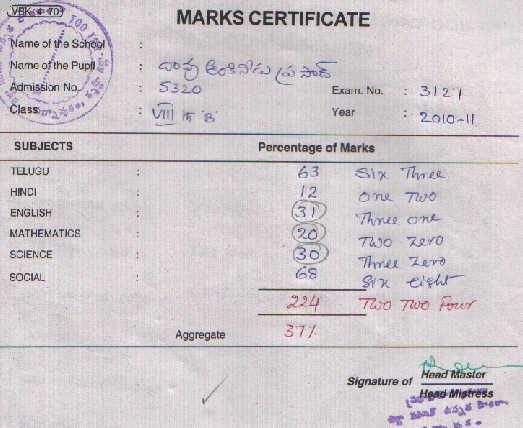 VBK 4 70
MARKS CERTIFICATE
Name of the School :
Name of the Pupil : దాసు అంకినీడు ప్రసాద్
Admission No. : 5320 Exam. No. : 3121
Class : VIII B Year : 2010-11
SUBJECTS Percentage of Marks
TELUGU : 63 Six Three
HINDI : 12 One Two
ENGLISH : 31 Three one
MATHEMATICS : 20 Two Zero
SCIENCE : 30 Three Zero
SOCIAL : 68 Six eight
224 Two Two Four
Aggregate 37%
Signature of Head Master
Head Mistress